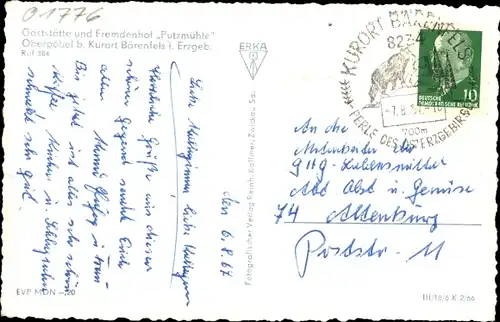 01776
Gaststätte und Fremdenhof „Putzmühle"
Oberpöbel b. Kurort Bärenfels i. Erzgeb.
Ruf 384
ERKA
KURORT BÄRENFELS
8234
-7.8.67-10
700m
PERLE DES OSTERZGEBIRGES
DEUTSCHE
DEMOKRATISCHE REPUBLIK
10
den 6.8.67
Liebe Kolleginnen, liebe Kollegen
Herzliche Grüße aus dieser
schönen Gegend sendet Euch
allen
Bis jetzt ist alles sehr schön
Kaffee, Kuchen u. Schlagsahne
schmeckt sehr gut.
Fotografischer Verlag Reinh. Kallmer, Zwickau Sa.
An die
Mitarbeiter der
GHG-Lebensmittel
Abt Obst u. Gemüse
74 Altenburg
Poststr. 11
EVP MDN -.20
III/18/6 K 2/66